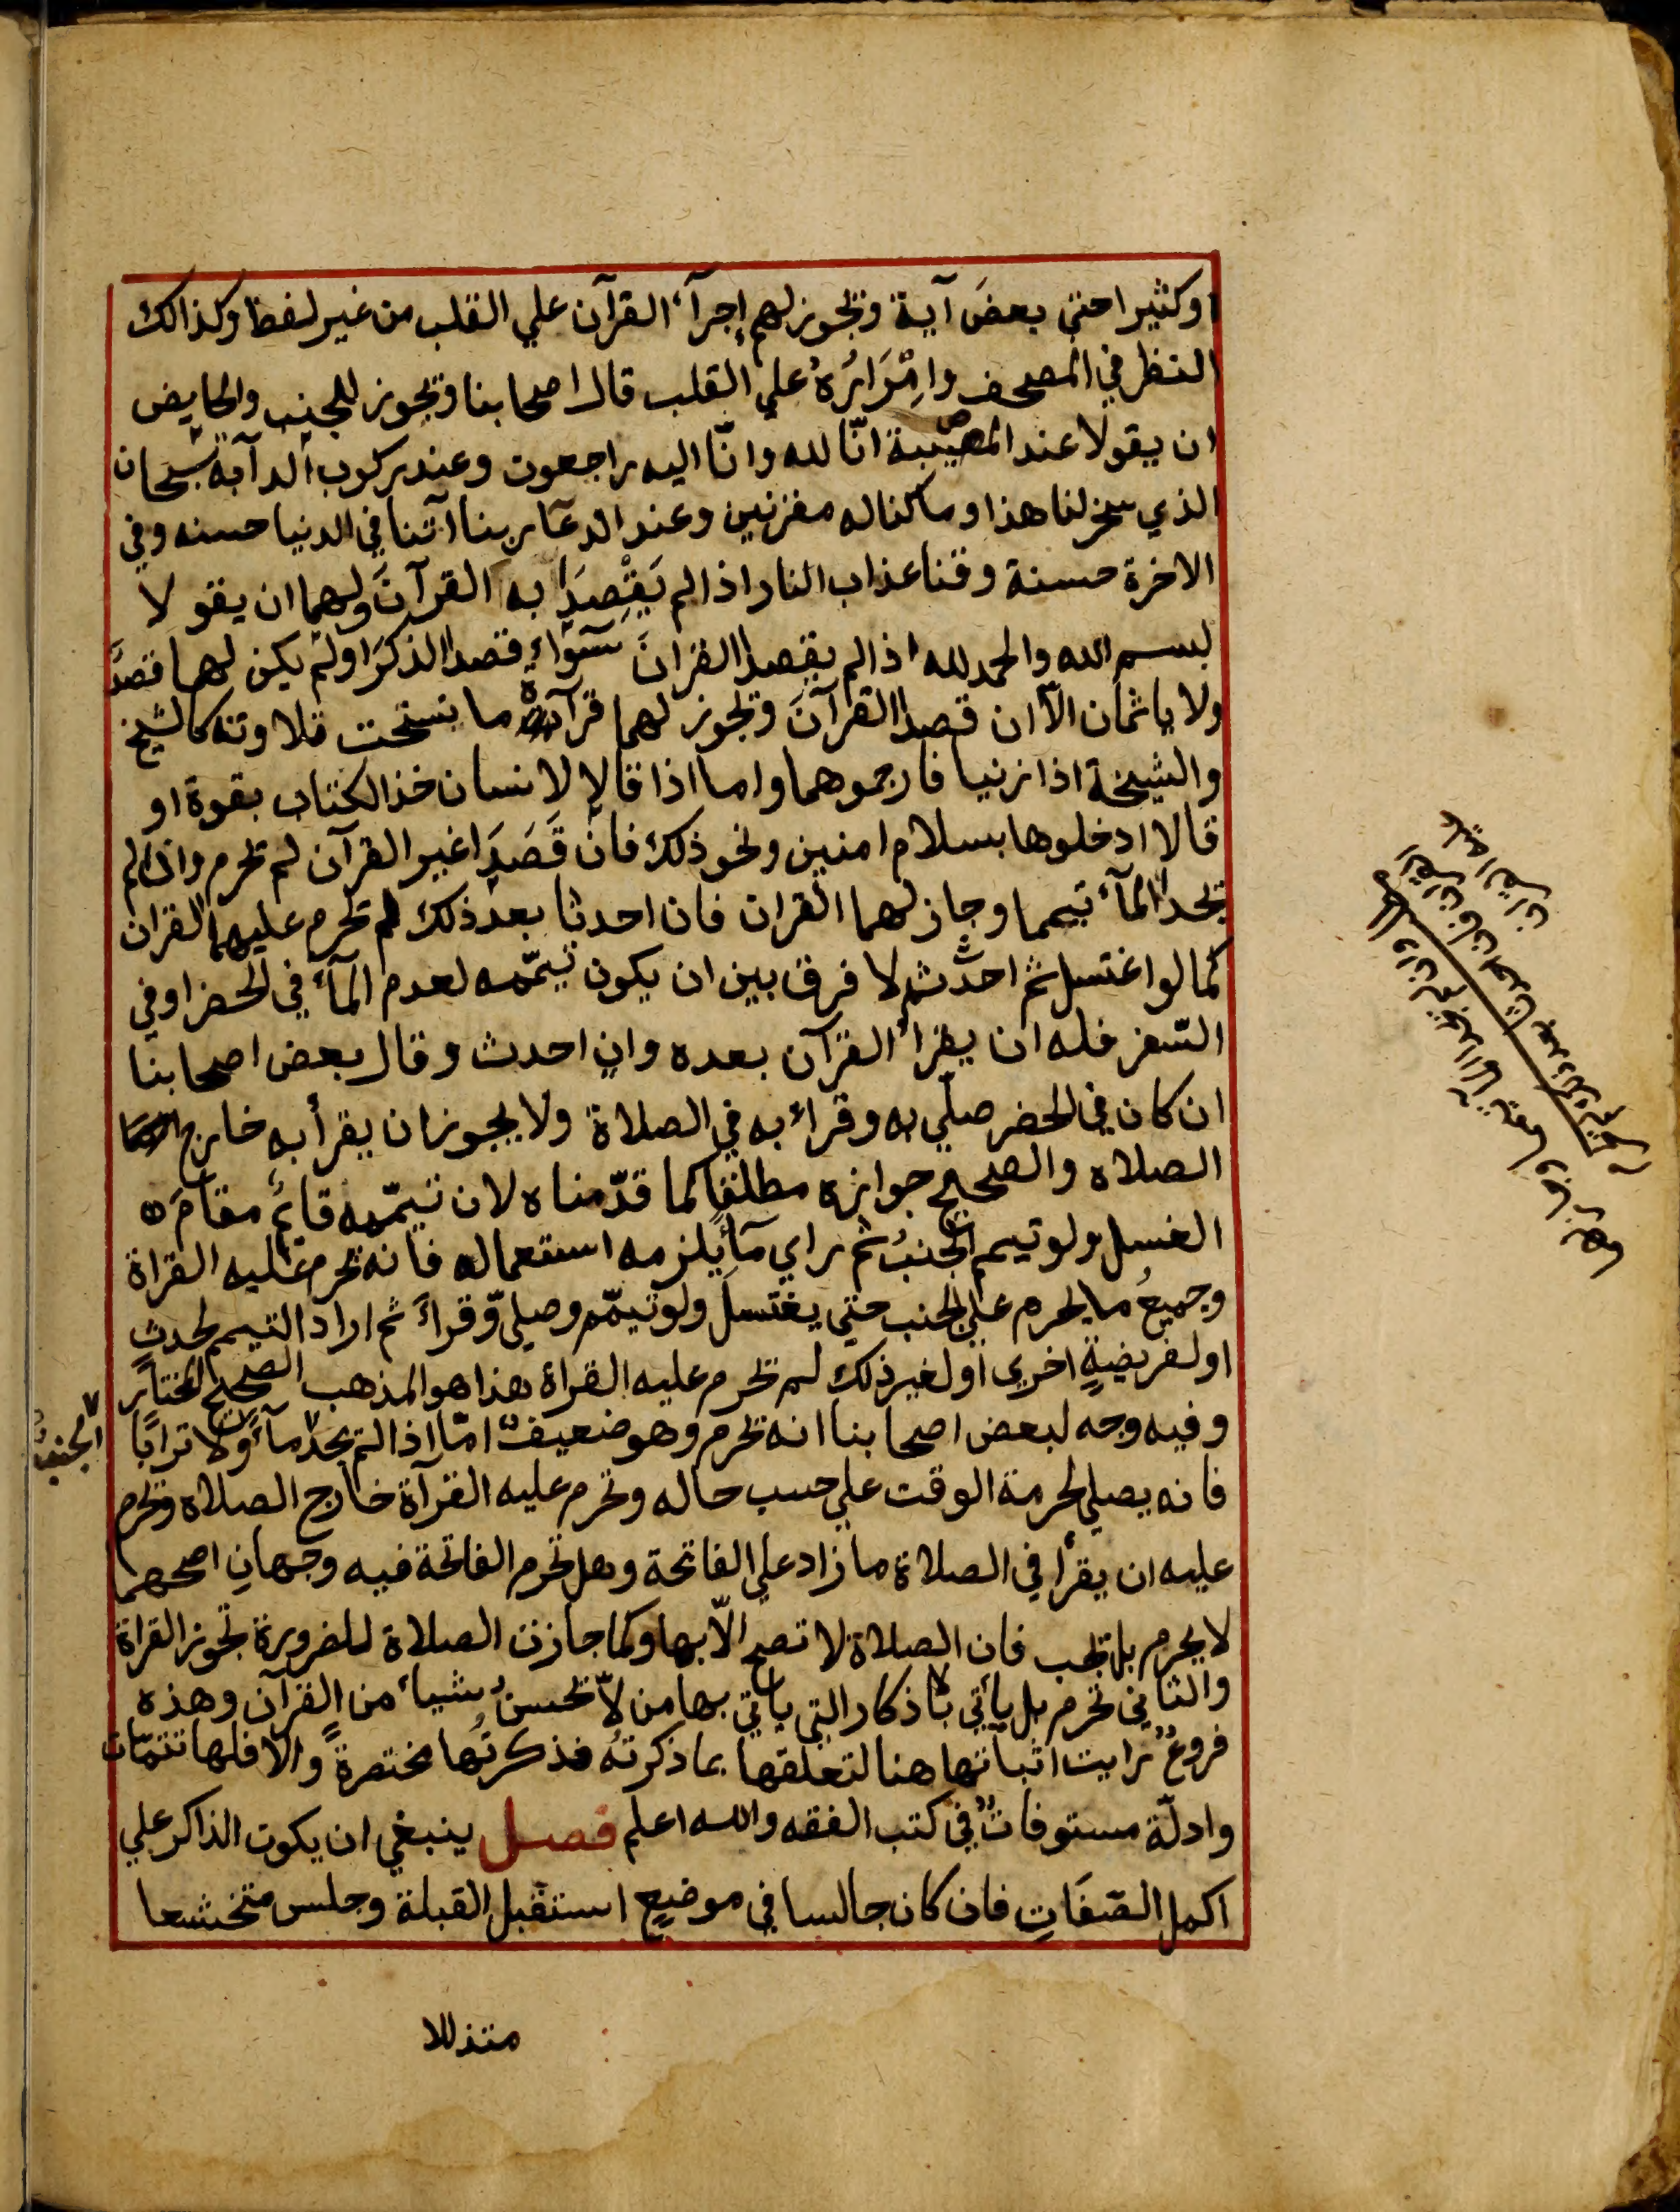 او كثيرا حتي بعضَ آية ويجوز لهم إجرآء القرآن علي القلب من غير لفظ وكذالك
النظر في المصحف وامْرَارُهُ علي القلب قال اصحابنا ويجوز للجنب والحايض
ان يقولا عند المصيبة انّا لله وانّا اليه راجعون وعند ركوب الدآبة سبحان
الذي سخر لنا هذا وما كنا له مقرنين وعند الدعآ ربنا اتنا في الدنيا حسنه وفي
الاخرة حسنة وقنا عذاب النار اذا لم يَقْصِدَا به القرآنَ ولهما ان يقولا
بسم الله والحمد لله اذا لم يقصدا القرانَ سَوَاءٍ قصدا الذكرَ اولم يكن لهما قصدٌ
ولا ياثمان الاّ ان قصدا القرآنَ ويجوز لهما قرآة ما نسخت تلاوته كالشيخ
والشيخة اذا زنيا فارجموهما واما اذا قالا لانسان خذ الكتاب بقوة او
قالا ادخلوها بسلام امنين ونحو ذلك فان قَصَدَا غير القرآن لم يحرم واذا لم
يجدا المآء تيمما وجاز لهما القران فان احدثا بعد ذلك لم تحرم عليهما القران
كما لو اغتسل ثم احدث ثم لا فرق بين ان يكون تيمّمه لعدم المآء في الحضر اوفي
السّفر فله ان يقرأ القرآن بعده وان احدث وقال بعض اصحابنا
ان كان في الحضر صلّي به وقراء به في الصلاة ولا يجوز ان يقرأ به خارج
الصلاه والصحيح جوازه مطلقاً كما قدّمناه لان تيمّمه قائم مقامَه
الغسل ولو تيمم الجنبُ ثم راي مآءً يلزمه استعماله فانه يحرم عليه القراة
وجميعُ ما يحرم علي الجنب حتي يغتسل ولو تيمّم وصلي وقراءَ ثم اراد التيمم لحدثٍ
اولفريضةٍ اخري اولغير ذلك لم تحرم عليه القراة هذا هو المذهب الصحيح المختار
وفيه وجه لبعض اصحابنا انه يحرم وهو ضعيفٌ امّا اذا لم يجد مآءً ولا ترابًا
الجنبُ
فانه يصلي لحرمة الوقت علي حسب حاله وتحرم عليه القرآة خارج الصلاه ويحرم
عليه ان يقرأ في الصلاة ما زاد علي الفاتحة وهل تحرم الفاتحة فيه وجهانِ اصحهما
لا يحرم بل تجب فان الصلاة لا تصح الاّ بها وكما جازت الصلاة للضرورة تجوز القراة
والثاني تحرم بل يأتي بالاذكار التي ياتي بها من لاّ يحسن شيأ من القرآن وهذه
فروعٌ رايت اثباتها هنا لتعلقها بما ذكرته فذكرتُها مختصرةً والا فلها تتمّات
وادلّة مستوفاتٌ في كتب الفقه والله اعلم فصل ينبغي ان يكون الذاكر علي
اكمل الصّفَاتِ فان كان جالسا في موضع استقبل القبلة وجلس متخشعا
متذللا